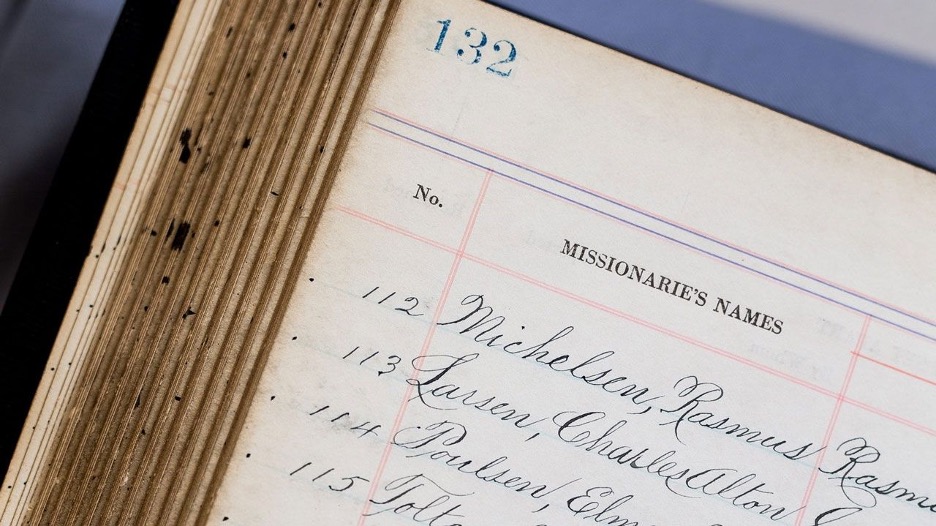 132
No. MISSIONARIE'S NAMES
112 Michelsen, Rasmus
113 Larsen, Charles Alton
114 Poulsen,
115